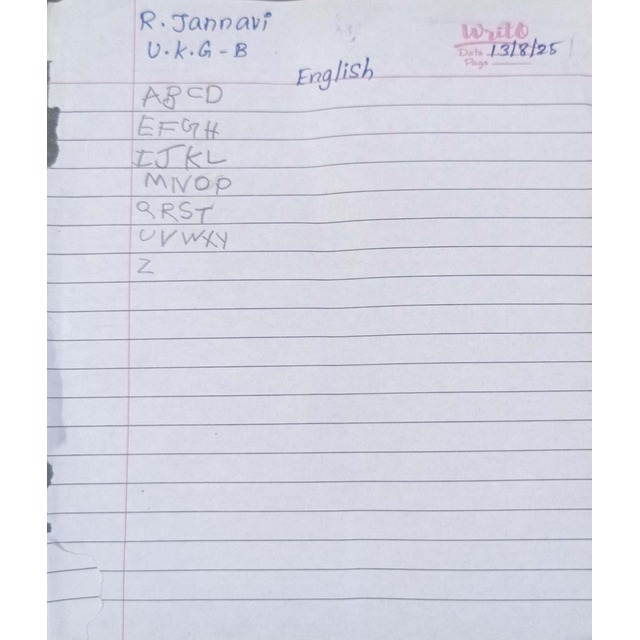 R. Jannavi
U.K.G - B
Write
Date 13/8/25
Page
English
ABCD
EFGH
IJKL
MNOP
QRST
UVWXY
Z